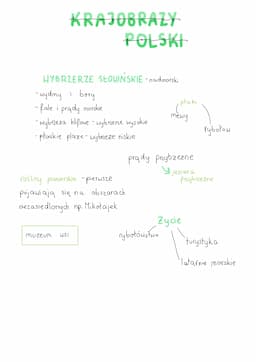 KRAJOBRAZY
POLSKI
WYBRZEŻE SŁOWIŃSKIE - nadmorski
- wydmy i bory
- fale i prądy morskie
- wybrzeża klifowe - wybrzeże wysokie
- płaskie plaże - wybrzeże niskie
ptaki
mewy
rybołów
prądy przybrzeżne
jeziora
przybrzeżne
rośliny pionierskie - pierwsze
pojawiają się na obszarach
niezasiedlonych np. Mikołajek
Życie
rybołówstwo
turystyka
latarnie morskie
muzeum wsi